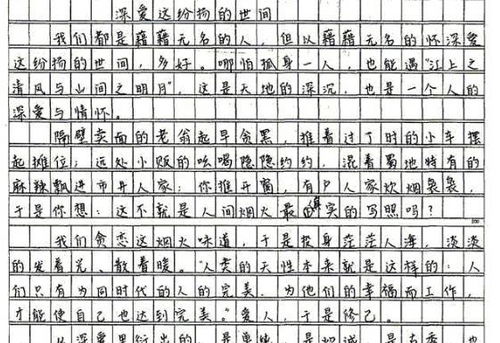 深爱这纷扬的世间
我们都是藉藉无名的人，但以藉藉无名的怀深爱
这纷扬的世间，多好。哪怕孤身一人，也能遇“江上之
清风与山间之明月”，这是天地的深沉，也是一个人的
深爱与情怀。
隔壁卖面的老翁起早贪黑，推着过了时的小车摆
起摊位；远处小贩的吆喝隐隐约约，混着蜀地特有的
麻辣飘进市井人家；你推开窗，有户人家炊烟袅袅，
于是你想：这不就是人间烟火最真实的写照吗？
我们贪恋这烟火味道，于是投身茫茫人海，淡淡
的发着光、散着暖。“人类的天性本来就是这样的：人
们只有为同时代的人的完美、为他们的幸福而工作，
才能使自己也达到完美。”爱人，于是修己。
从深爱里衍出的，是单纯，是